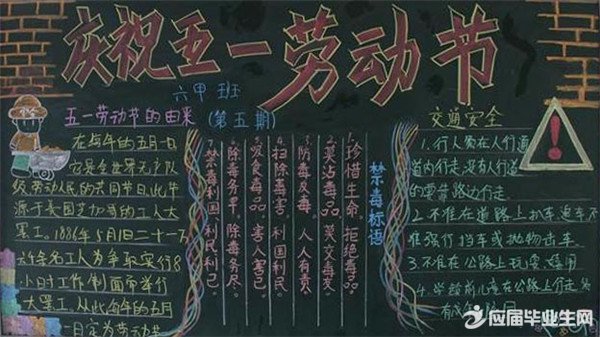 庆祝五一劳动节
六甲班
(第五期)
五一劳动节的由来
在每年的五月一日
它是全世界无产阶
级劳动人民的共同节日,此节
源于美国芝加哥的工人大
罢工。1886年5月1日二十一万
六千余名工人为争取实行8
小时工作制而举行
大罢工,从此每年的五月
一日定为劳动节
禁毒标语
1.珍惜生命,拒绝毒品。
2.莫沾毒品,莫交毒友。
3.防毒反毒,人人有责。
4.扫除毒害,利国利民
5.吸食毒品,害人害己。
6.除毒务早,除毒务尽。
7.禁毒利国,利民利己。
交通安全
1.行人须在人行通
道内行走,没有人行道
的要靠路边行走。
2.不准在道路上扒车追车不
准强行拦车或抛物击车。
3.不准在公路上玩耍、嬉闹
4.学龄前儿童在公路上行走
应届毕业生网